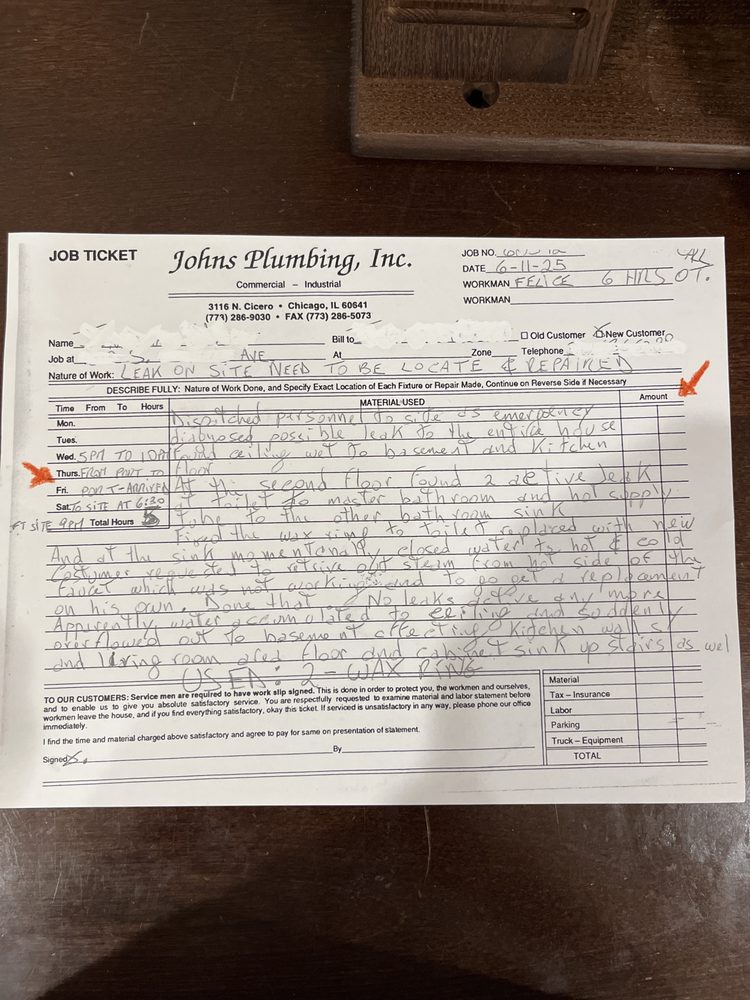 JOB TICKET
Johns Plumbing, Inc.
Commercial – Industrial
3116 N. Cicero • Chicago, IL 60641
(773) 286-9030 • FAX (773) 286-5073
JOB NO.
CALL
DATE 6-11-25
WORKMAN FELICE 6 HRS OT.
WORKMAN
Name
Bill to
Old Customer New Customer
Job at S. AVE At Zone Telephone
Nature of Work: LEAK ON SITE NEED TO BE LOCATE & REPAIRED
DESCRIBE FULLY: Nature of Work Done, and Specify Exact Location of Each Fixture or Repair Made, Continue on Reverse Side if Necessary
Time From To Hours
MATERIAL USED
Amount
Mon.
Tues.
Wed. 5PM TO 10PM
Thurs. FROM PORT TO
Fri. PORT-ARRIVED
Sat. TO SITE AT 6:30
SITE 9PM Total Hours 5
Dispitched personnel to site as emergency
diagnosed possible leak to the entire house
Found ceiling wet to basement and Kitchen
floor
At the second floor found 2 active leak
1 toilet to master bathroom and hot supply
tube to the other bathroom sink
Fixed the wax ring to toilet replaced with new
And at the sink momentanaly closed water to hot & cold
Costumer requested to retrive out steam from hot side of the
faucet which was not working and to go get a replacement
on his own. Done that. No leaks active any more
Apparently water accumolated to ceiling and suddenly
overflowed out to basement affecting kitchen walls
and living room area floor and cabinet sink up stairs as wel
USED: 2 - WAX RING
TO OUR CUSTOMERS: Service men are required to have work slip signed. This is done in order to protect you, the workmen and ourselves,
and to enable us to give you absolute satisfactory service. You are respectfully requested to examine material and labor statement before
workmen leave the house, and if you find everything satisfactory, okay this ticket. If serviced is unsatisfactory in any way, please phone our office
immediately.
I find the time and material charged above satisfactory and agree to pay for same on presentation of statement.
Signed X. By
Material
Tax – Insurance
Labor
Parking
Truck – Equipment
TOTAL